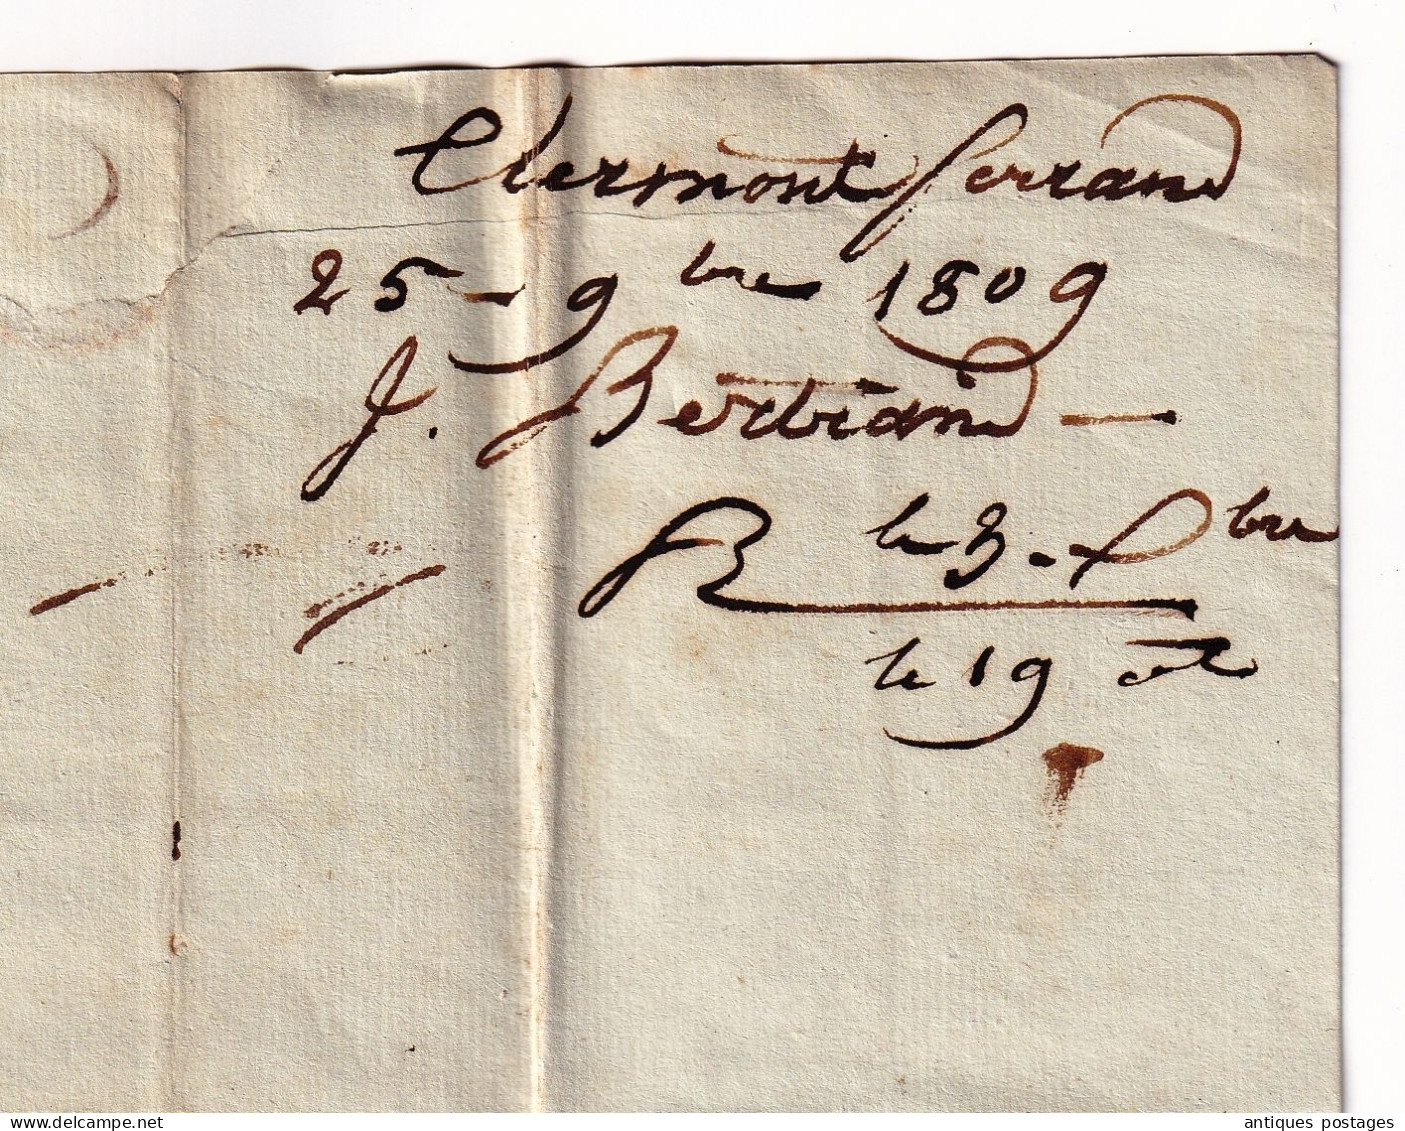 Clermont ferrand
25 - 9bre 1809
J. Bertrand -
R le 3. Xbre
le 19 dt
antiques postages